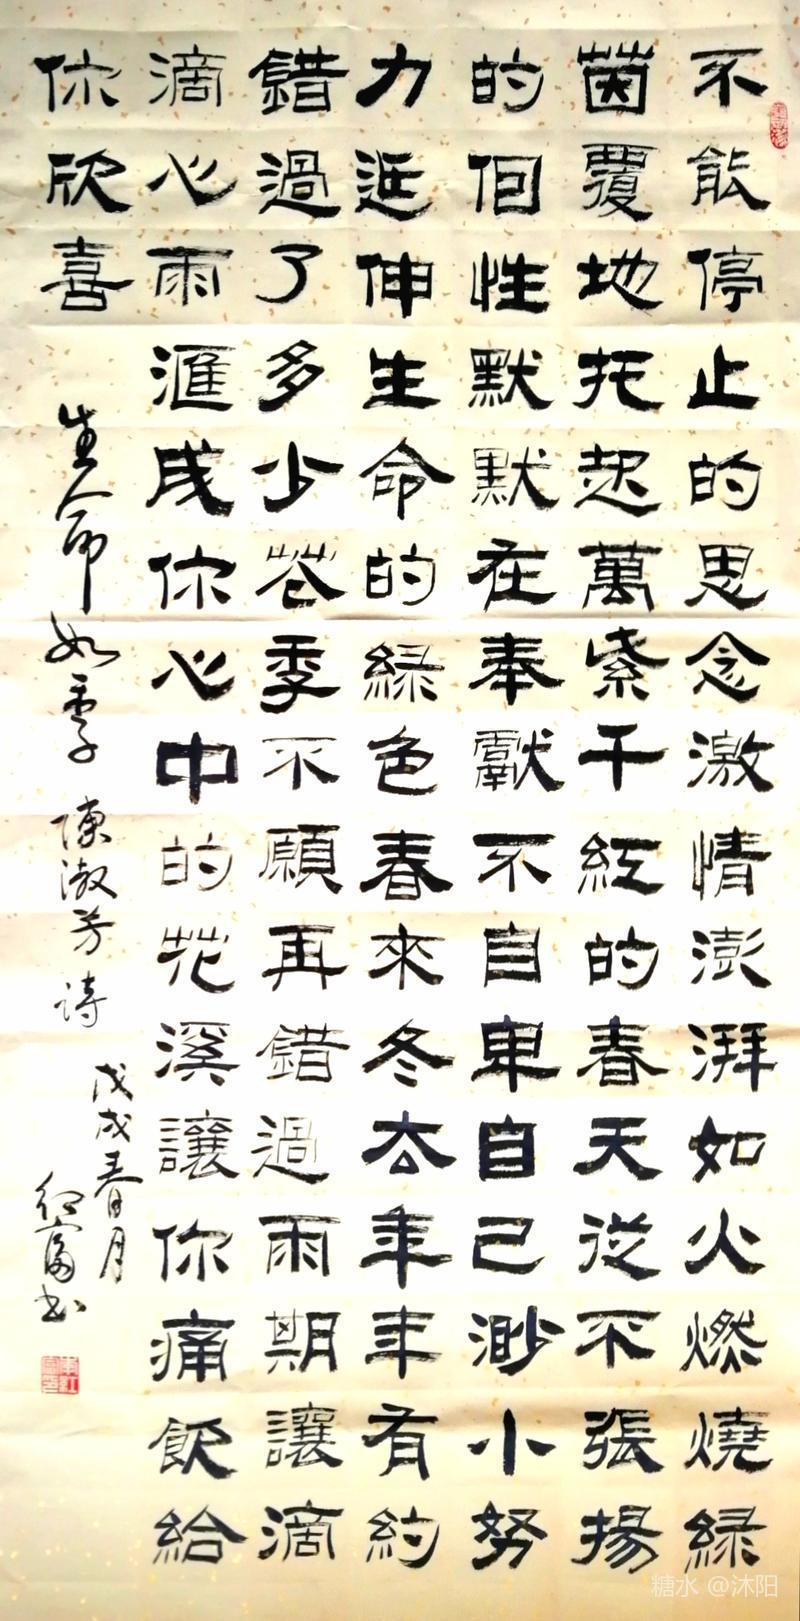 不能停止的思念激情澎湃如火燃燒緑
茵覆地托起萬紫千紅的春天從不張揚
的個性默默在奉獻不自卑自己渺小努
力延伸生命的緑色春來冬去年年有約
錯過了多少花季不願再錯過雨期讓滴
滴心雨滙成你心中的花溪讓你痛飲給
你欣喜
生命如季 陳淑芳詩
戊戌春月
紅富书
糖水 @沐阳